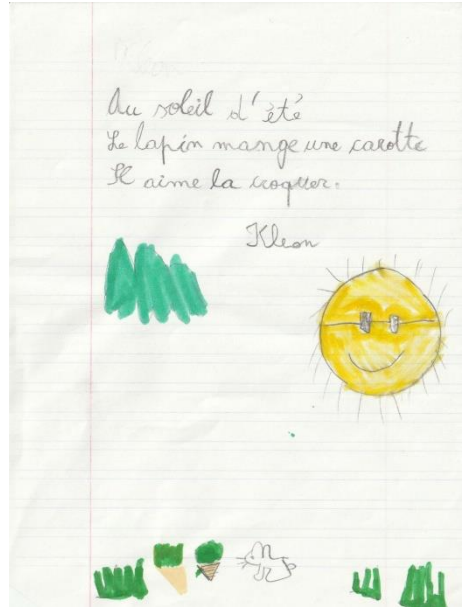 Au soleil d'été
Le lapin mange une carotte
Il aime la croquer.
Kleon